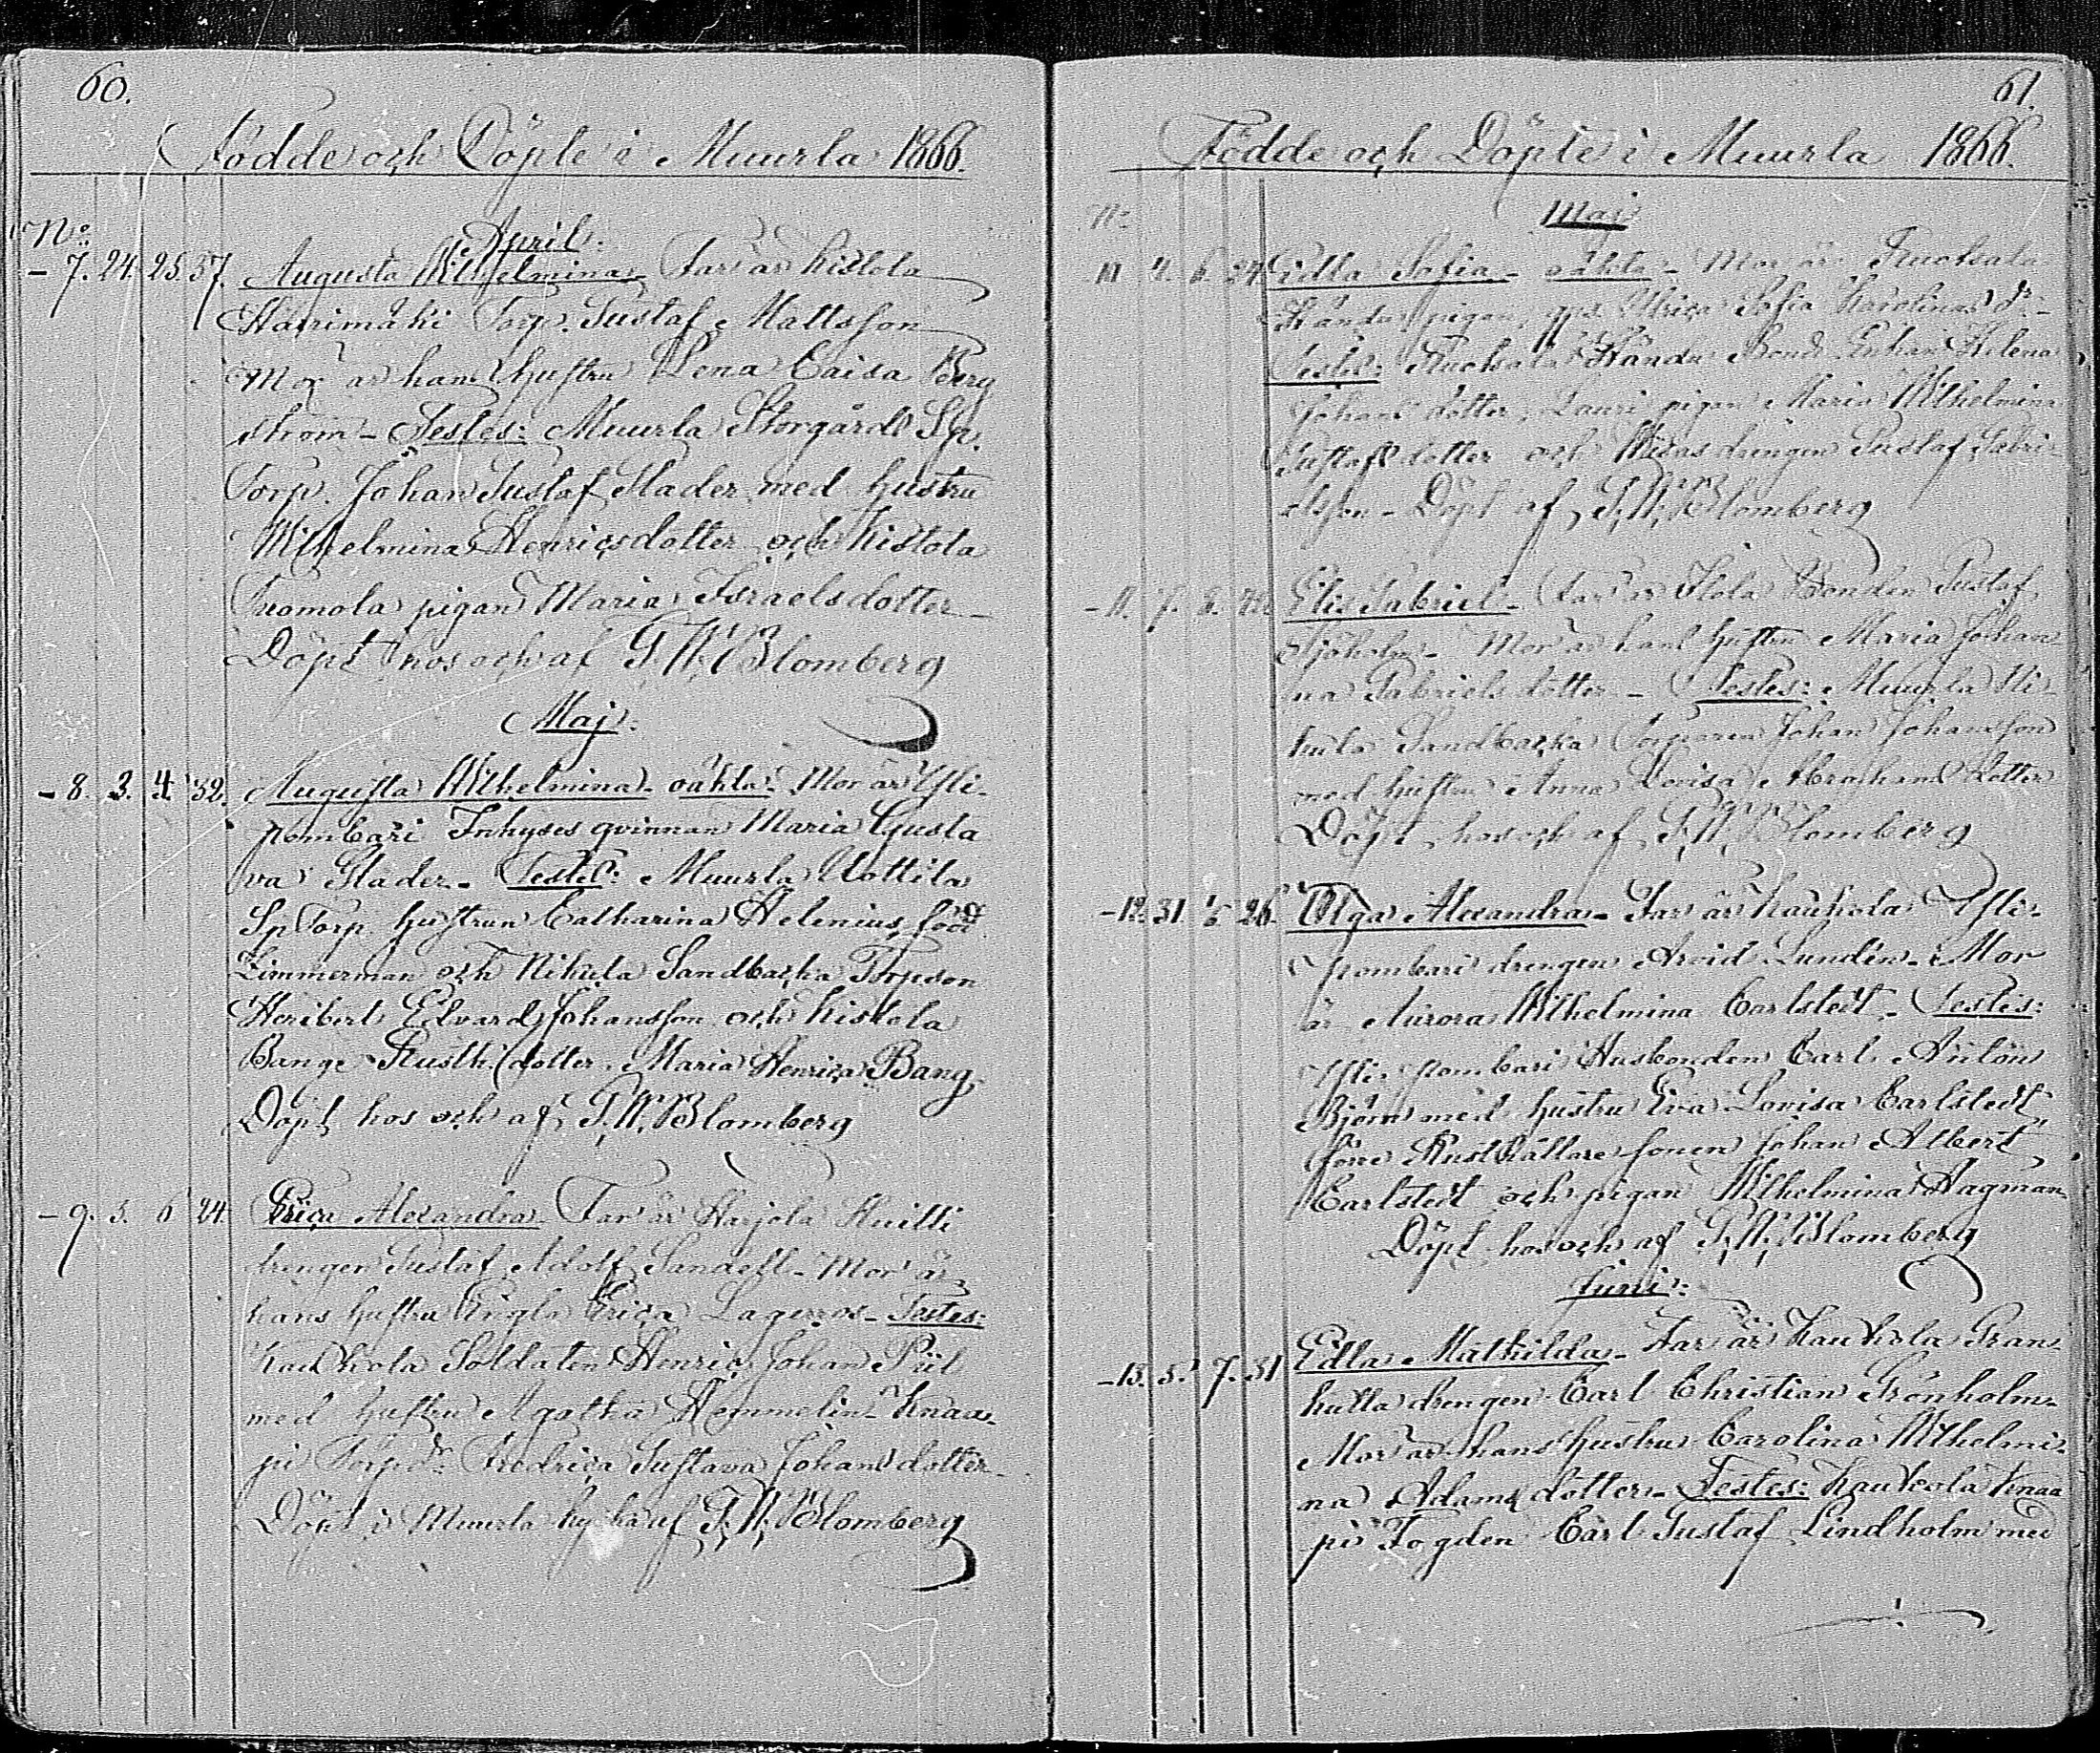 60.
Födde och Döpte i Muurla 1866.
No
April.
- 7. 24. 25. 37. Augusta Wilhelmina Far är Kistola
Harrimäki Torp. Gustaf Mattsson
Mor är hans hustru Lena Caisa Berg
ström - Testes: Muurla Storgårds Sp.
Torp. Johan Gustaf Flader med hustru
Wilhelmina Henricsdotter och Kistola
Tuomola pigan Maria Israelsdotter
Döpt hos och af G. W. Blomberg
Maj.
- 8. 3. 4. 32. Augusta Wilhelmina oäkta. Mor är Yli-
pombäri Inhyses qvinnan Maria Gusta
va Flader - Testes: Muurla Uottila
Sp Torp. hustrun Catharina Helenius, född
Zimmerman och Nikula Sandbacka Torpson
Heribert Edvard Johansson och Kistola
Bange Rusth. dotter. Maria Henrica Bang
Döpt hos och af G. W. Blomberg
- 9. 5. 6 24. Erica Alexandra Far är Harjola Huitti
drengen Gustaf Adolf Sandell - Mor är
hans hustru Engla Erica Lagerros - Testes:
Kaukola Soldaten Henric Johan Piil
med hustru Agatha Hemmelin - Knaa-
pi Torp dr Fredrica Gustava Johansdotter
Döpt i Muurla kyrka af G. W. Blomberg
61.
Födde och Döpte i Muurla 1866.
No
Maj
10 4. 6. 24 Edla Sofia - oäkta - Mor är Ruotsala
Händar pigan Ulrica Sofia Karolinas dr -
Testes: Ruotsala Händar Bonde Enkan Helena
Johans dotter, Lauri pigan Maria Wilhelmina
Gustafs dotter och drengen Gustaf Gabri-
elsson - Döpt af G. W. Blomberg
- 11. 7. 8. Elis Gabriel - Far är Ylola Bonden Gustaf
Sjöholm - Mor är hans hustru Maria Johan
na Gabriels dotter - Testes: Muurla Ni-
kula Sandbacka Torparen Johan Johansson
med hustru Anna Lovisa Abrahams dotter
Döpt hos och af G. W. Blomberg
- 12. 31. 1/6 26. Olga Alexandra - Far är Kaukola Yli-
pombäri drengen Arvid Lundén - Mor
är Aurora Wilhelmina Carlstedt - Testes:
Yli-pombäri Husbonden Carl Anton
Björn med hustru Eva Lovisa Carlstedt,
före Rusthållare sonen Johan Albert
Carlstedt och pigan Wilhelmina Hagman
Döpt hos och af G. W. Blomberg
Juni:
- 13. 5. 7. 31 Edla Mathilda - Far är Kaukola Pran-
kulla drengen Carl Christian Grönholm -
Mor är hans hustru Carolina Wilhelmi-
na Adams dotter - Testes: Kaukola Knaa
pi Fogden Carl Gustaf Lindholm med